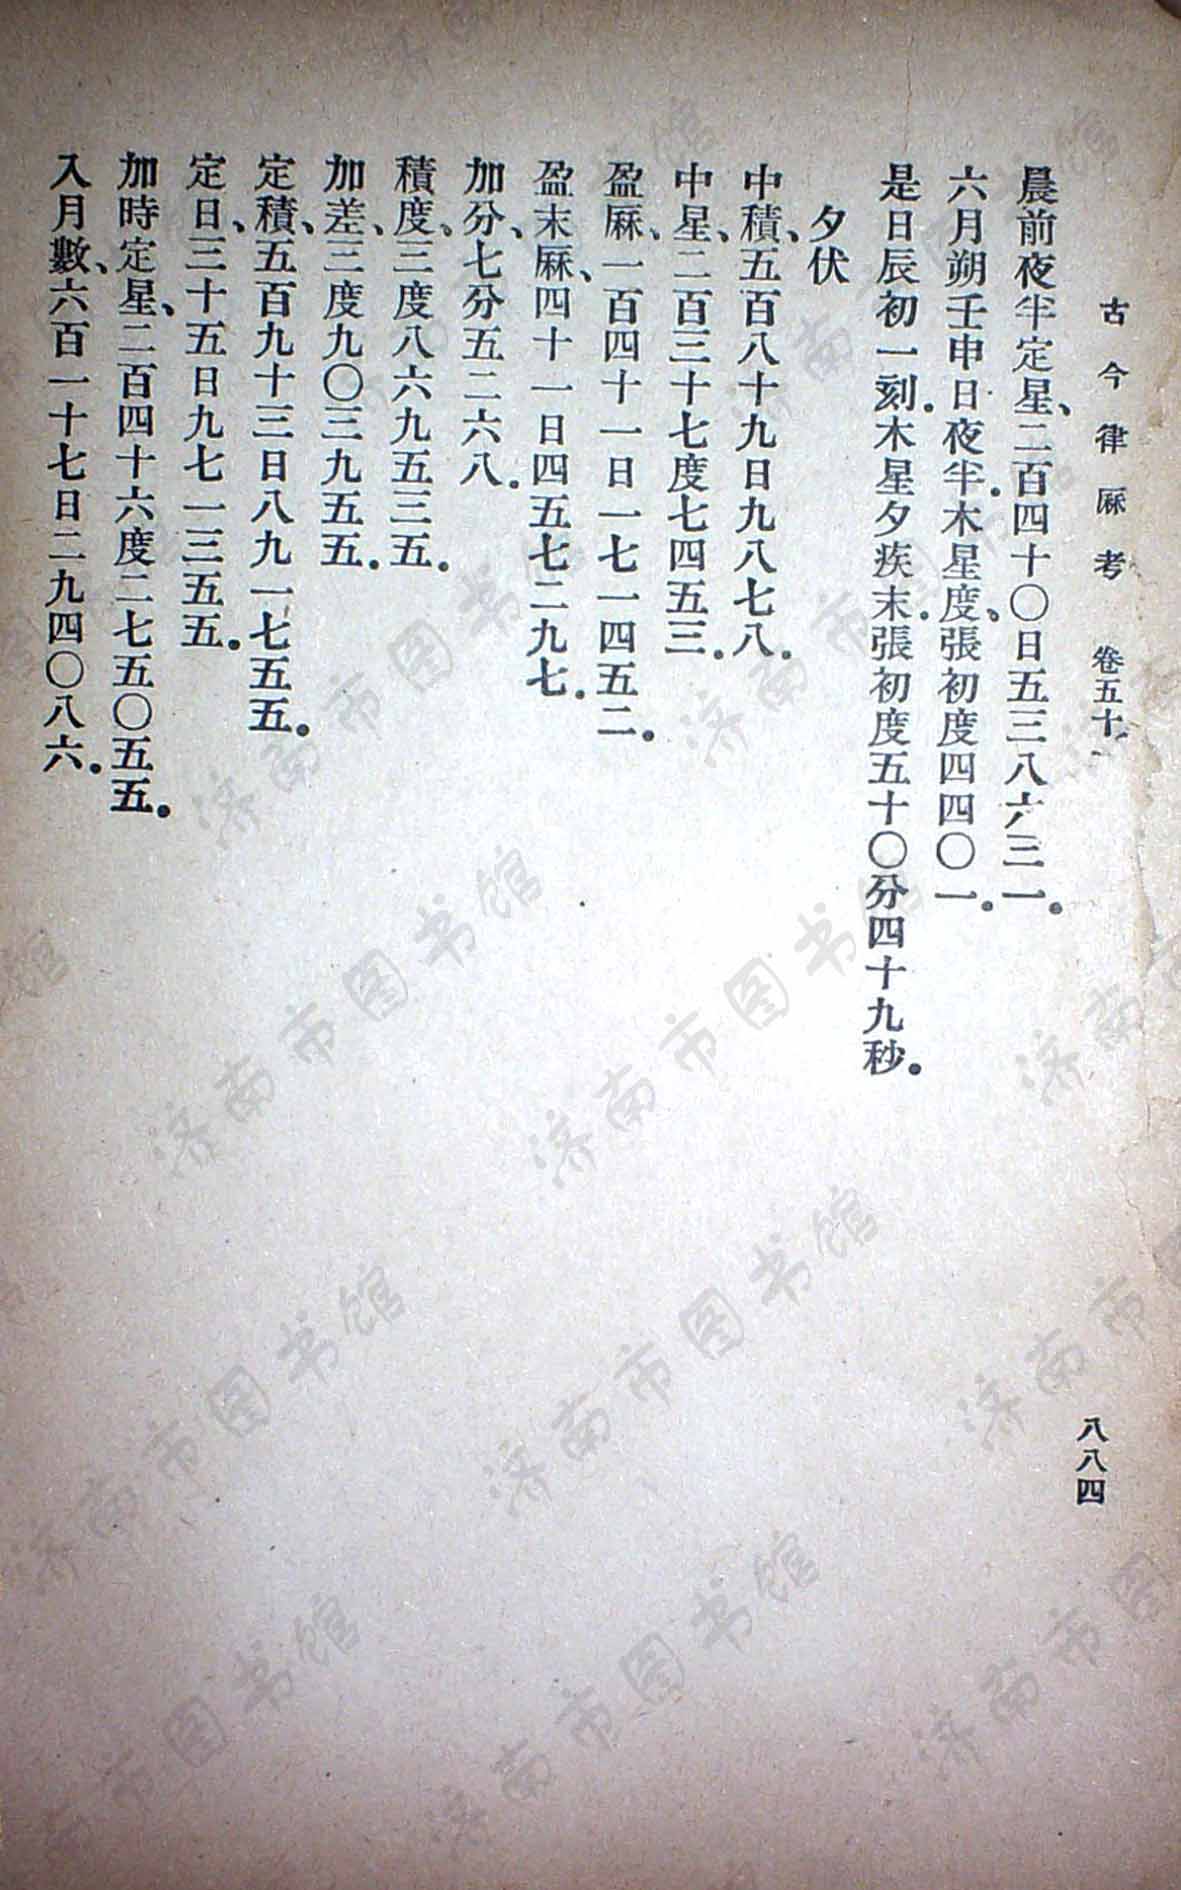 古今律厤考 卷五十
八八四
晨前夜半定星、二百四十〇日五三八六三一。
六月朔壬申日夜半。木星度、張初度四四〇一。
是日辰初一刻。木星夕疾末。張初度五十〇分四十九秒。
夕伏
中積、五百八十九日九八七八。
中星、二百三十七度七四五三。
盈厤、一百四十一日一七一四五二。
盈末厤、四十一日四五七二九七。
加分、七分五二六八。
積度、三度八六九五三五。
加差、三度九〇三九五五。
定積、五百九十三日八九一七五五。
定日、三十五日九七一三五五。
加時定星、二百四十六度二七五〇五五。
入月數、六百一十七日二九四〇八六。
济南市图书馆